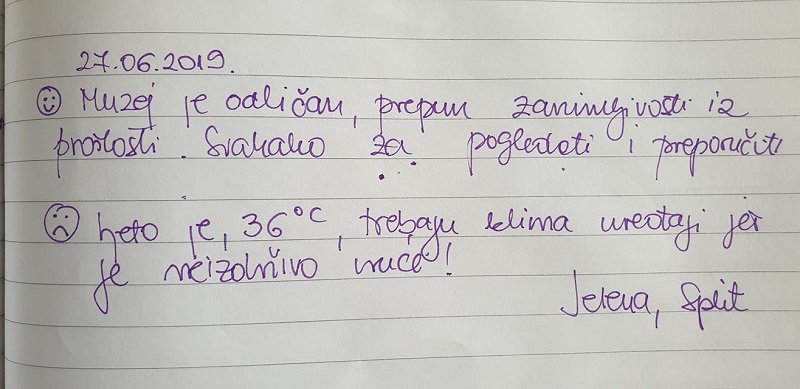 27.06.2019.
☺ Muzej je odličan, prepun zanimljivosti iz
prošlosti. Svakako za pogledati i preporučiti
☹ Ljeto je, 36°C, trebaju klima uređaji jer
je neizdrživo vruće!
Jelena, Split